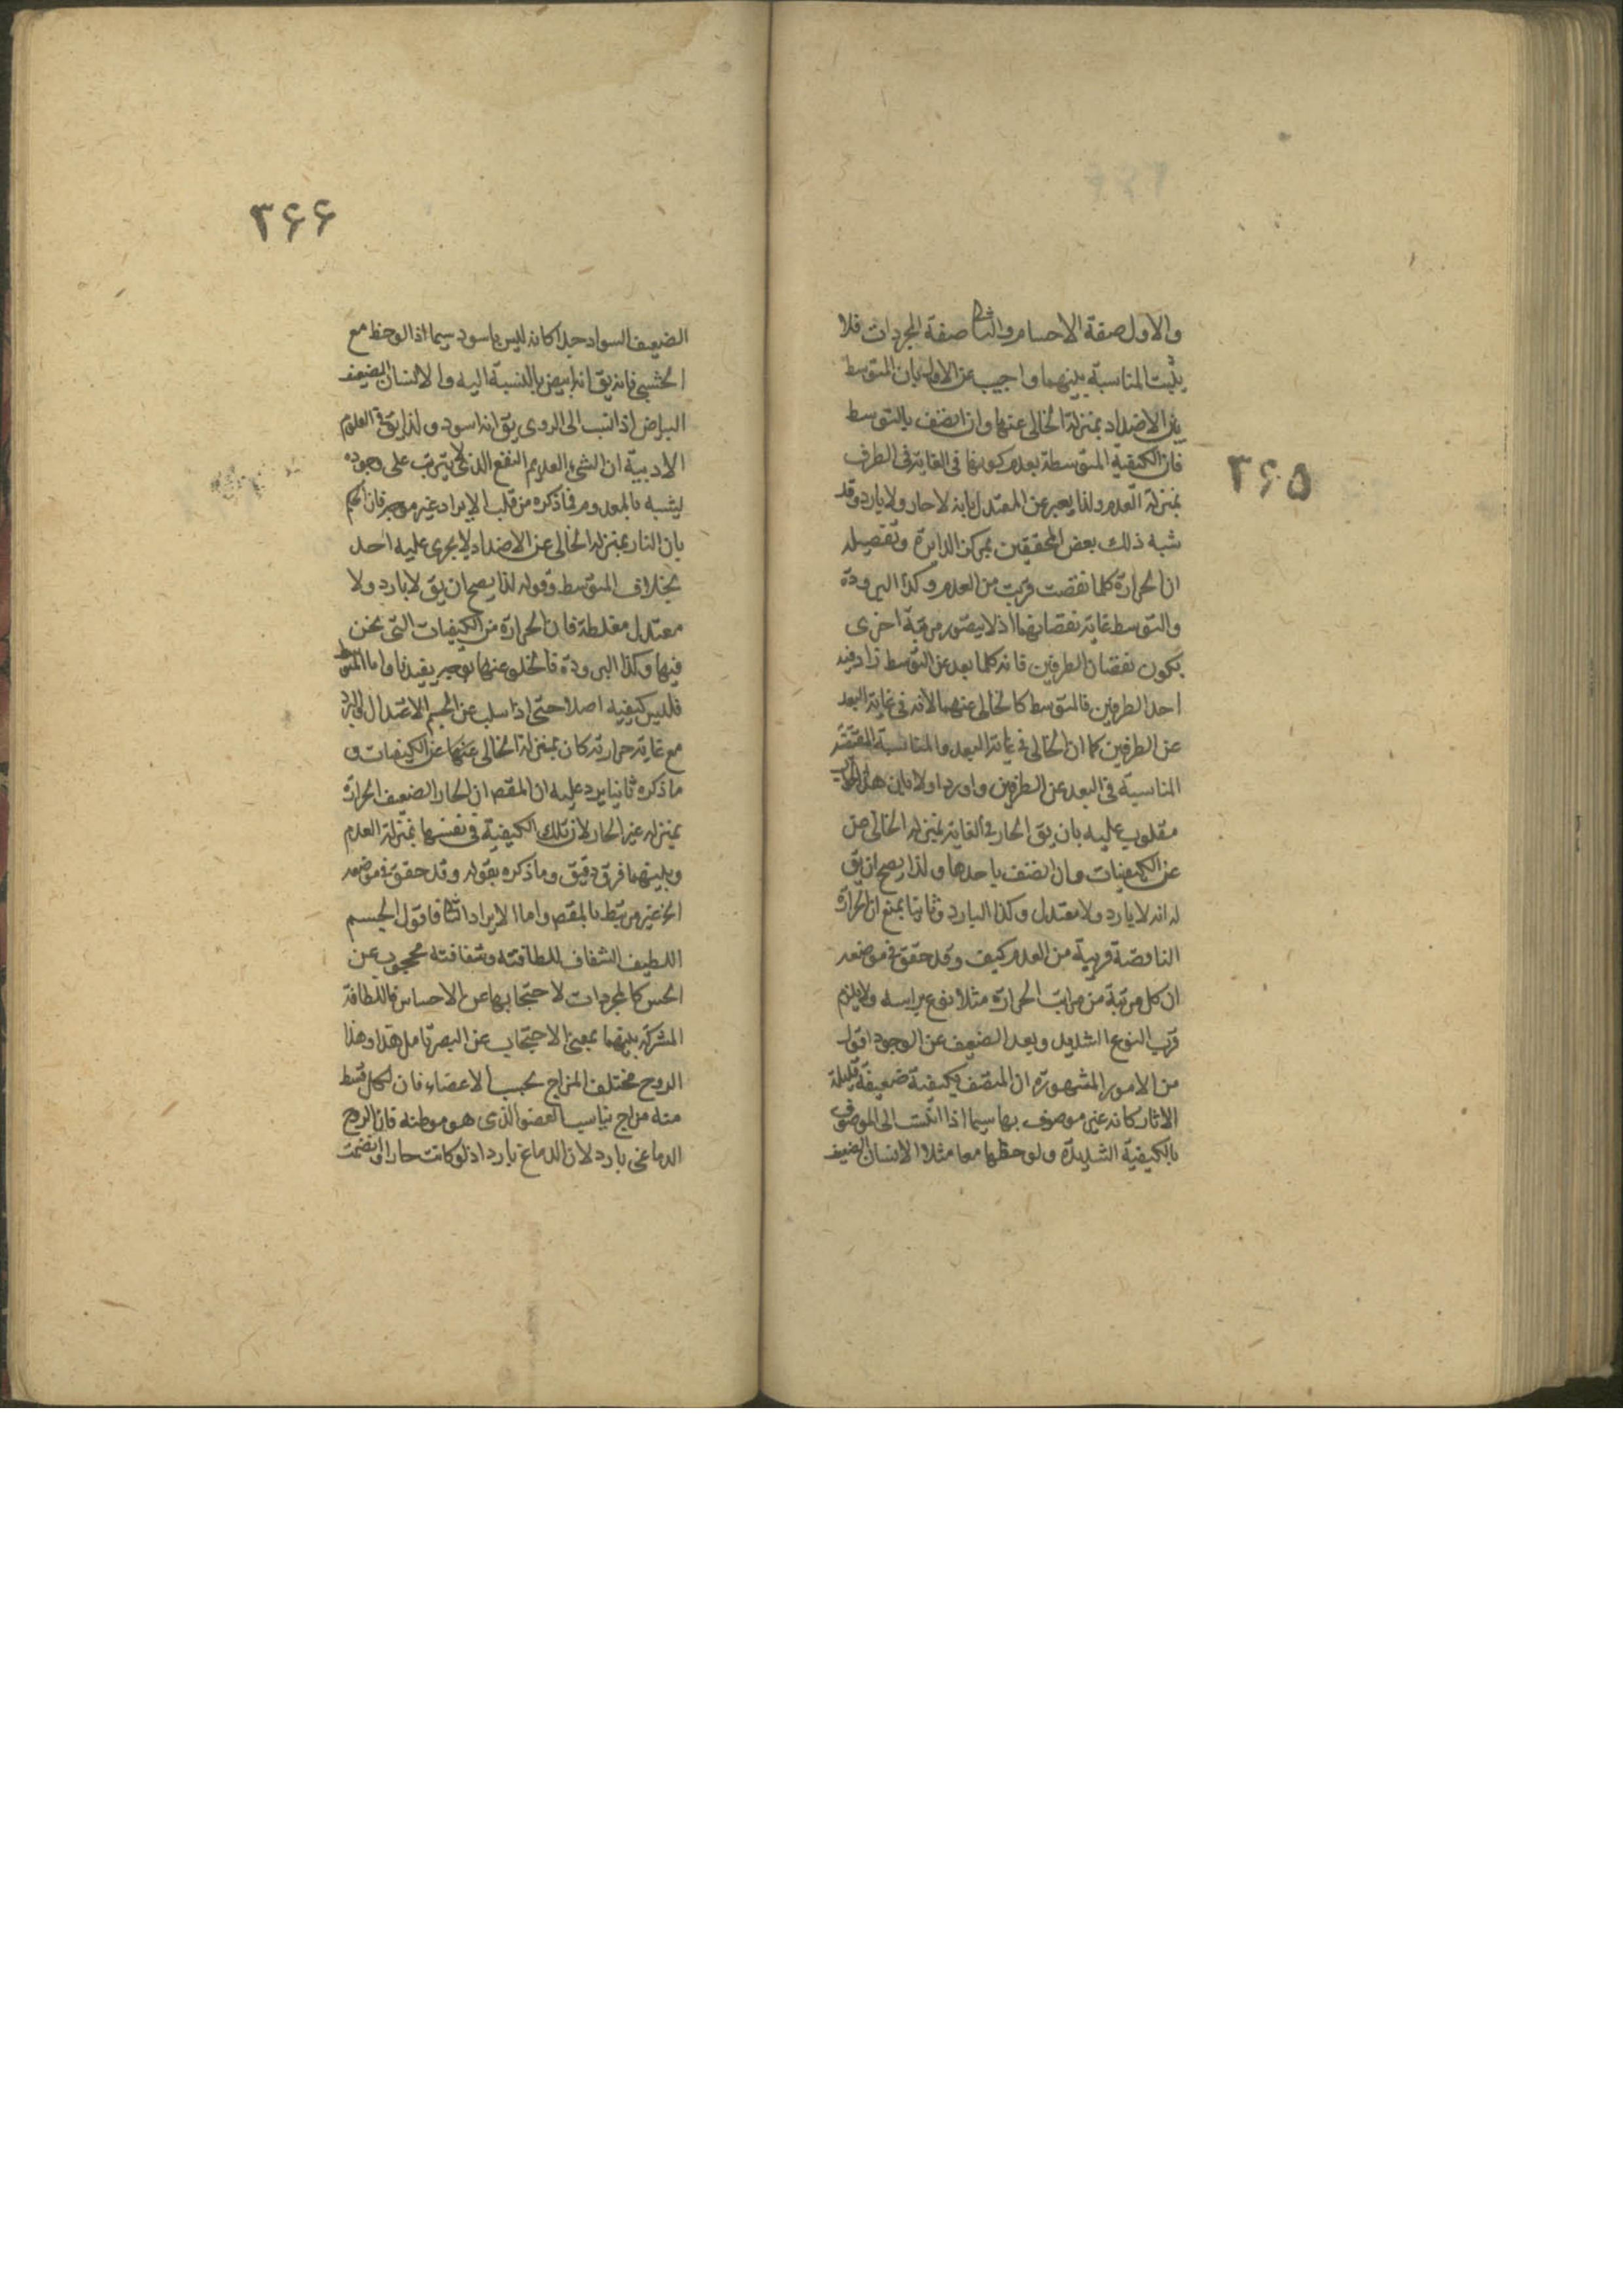 ۳۶۵
والاول صفة الاجسام والثانی صفة المجردات فلا
یثبت المناسبة بینهما واجیب عن الاول بان المتوسط
بین الاضداد بمنزلة الخالی عنها وان اتصف بالتوسط
فان الکیفیة المتوسطة بعدم کونها فی الغایة فی الطرف
بمنزلة العدم ولذا یعبر عن المعتدل بانه لا حار ولا بارد وقد
شبه ذلک بعض المحققین بمرکز الدایرة وتفصیله
ان الحرارة کلما نقصت قربت من العدم وکذا البرودة
والتوسط غایة نقصانهما اذ لا یتصور مرتبة اخری
یکون نقصان الطرفین فانه کلما بعد عن التوسط زاد فیه
احد الطرفین فالمتوسط کالخالی عنهما لانه فی غایة البعد
عن الطرفین کما ان الخالی فی غایة البعد والمناسبة
المناسبة فی البعد عن الطرفین واورد اولا بان هذا الجواب
مقلوب علیه بان یق الحار فی الغایة بمنزلة الخالی
عن الکیفیات وان اتصف باحدها ولذا یصح ان یق
له انه لا بارد ولا معتدل وکذا البارد وثانیا بمنع ان الحرارة
الناقصة قریبة من العدم کیف وقد حقق فی موضعه
ان کل مرتبة من مراتب الحرارة مثلا نوع براسه ولا یلزم
قرب النوع الشدید وبعد الضعیف عن الوجود اقول
من الامور المشهورة ان المتصف بکیفیة ضعیفة قلیلة
الاثار کانه غیر موصوف بها سیما اذا انتسب الی الموصوف
بالکیفیة الشدیدة ولوحظا معا مثلا الانسان الضعیف
۳۶۶
الضعیف السواد جدا کانه لیس باسود سیما اذا لوحظ مع
الحبشی فانه یق انه ابیض بالنسبة الیه والانسان الضعیف
البیاض اذا نسب الی الرومی یق انه اسود ولذا یق فی العلوم
الادبیة ان الشیء العدیم النفع الذی لا یترتب علی وجوده
یشبه بالمعدوم فما ذکره من قلب الایراد غیر موجه فان الحکم
بان النار بمنزلة الخالی عن الاضداد لا یجری علیه احد
بخلاف المتوسط وقوله لذا یصح ان یق لا بارد ولا
معتدل مغلطة فان الحرارة من الکیفیات التی نحن
فیها وکذا البرودة فالخلو عنهما یوجب بعیدنا واما المتوسط
فلیس کیفیه اصلا حتی اذا سلب عن الجسم الاعتدال والبرد
مع غایة حرارته کان بمنزلة الخالی عنها عن الکیفیات و
ما ذکره ثانیا یرد علیه ان المقصد ان الحار الضعیف الحرارة
بمنزلة غیر الحار لان تلک الکیفیة فی نفسها بمنزلة العدم
وبینهما فرق دقیق وما ذکره بقوله وقد حقق فی موضعه
الخ غیر مرتبط بالمقصد واما الایراد الثانی فاقول الجسم
اللطیف الشفاف للطافته وشفافته محجوب عن
الحس کالمجردات لاحتجابها عن الاحساس فاللطافة
المشترکة بینهما بمعنی الاحتجاب عن البصر تامل هذا وهذا
الروح مختلف المزاج بحسب الاعضاء فان لکل قسط
منه مزاج یناسب العضو الذی هو موطنه فان الروح
الدماغی بارد لان الدماغ بارد اذ لو کانت حارا وانضمت